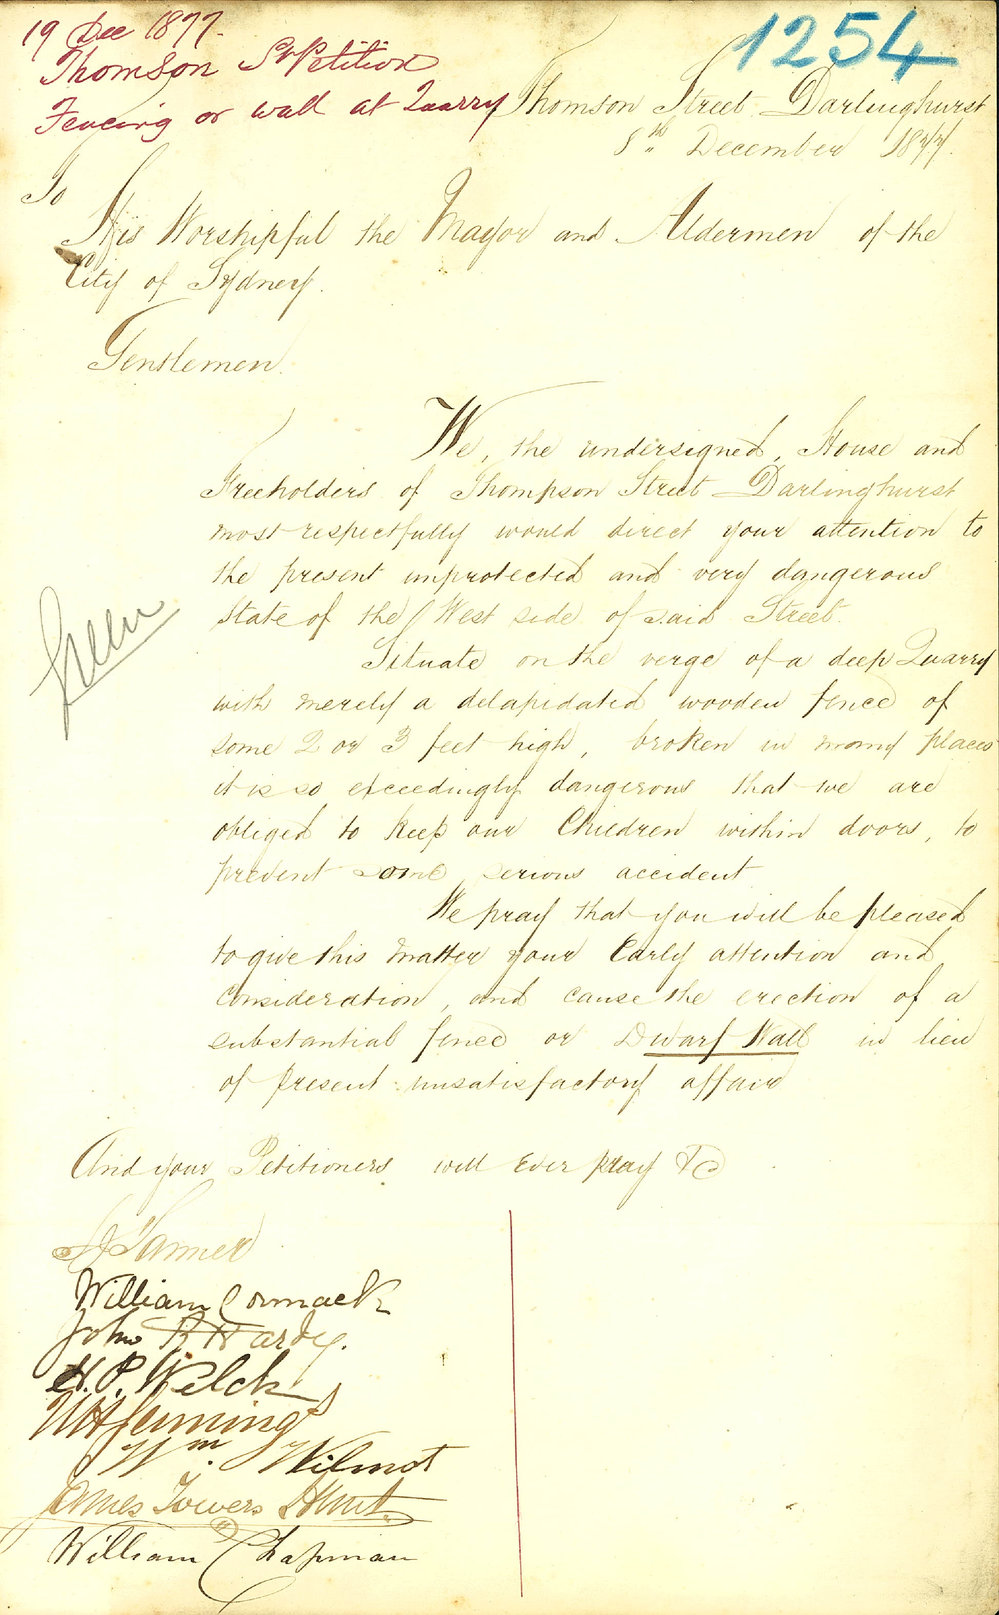 19 Dec 1877.
1254
Thomson St Petition
Fencing or wall at Quarry
Thomson Street Darlinghurst
8th December 1877.
To
His Worshipful the Mayor and Aldermen of the
City of Sydney.
Gentlemen.
We, the undersigned, House and
Freeholders of Thompson Street Darlinghurst
most respectfully would direct your attention to
the present unprotected and very dangerous
State of the West side of said Street.
Situate on the verge of a deep Quarry
with merely a delapidated wooden fence of
some 2 or 3 feet high, broken in many places
it is so exceedingly dangerous that we are
obliged to keep our Children within doors, to
prevent some serious accident
Green
We pray that you will be pleased
to give this matter your Early attention and
Consideration, and cause the erection of a
substantial fence or Dwarf Wall in lieu
of present unsatisfactory affair
And your Petitioners will Ever pray &c
Tanner
William Cormack
John R Hardy.
H. P. Welch
Fleming
Wm. Wilmot
James Towers Hunt
William Chapman